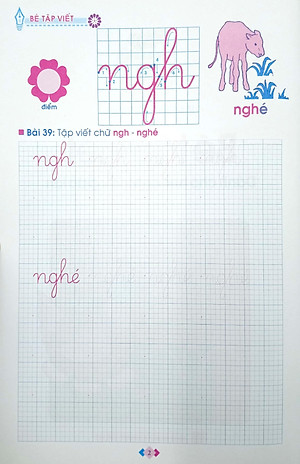 BÉ TẬP VIẾT
ngh
điểm
nghé
Bài 39: Tập viết chữ ngh - nghé
ngh
nghé
2